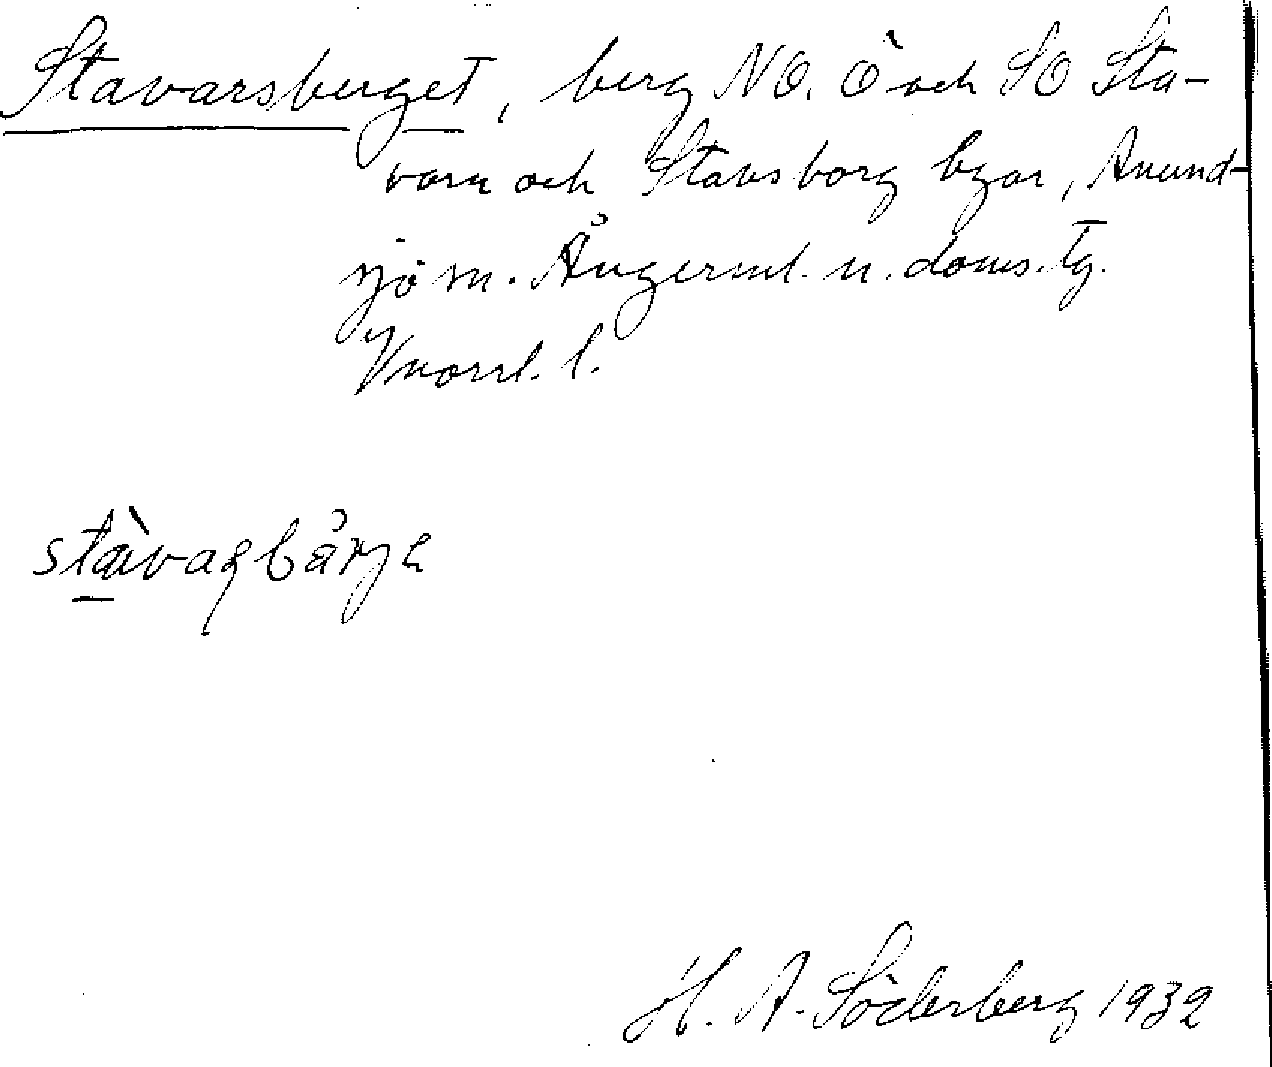 Stavarsberget, berg NO. Ö och SO Sta-
varn och Stavsborg byar, Anund-
sjö sn. Ångerml. n. doms.tg.
Vnorrl. l.
H. A. Söderberg 1932